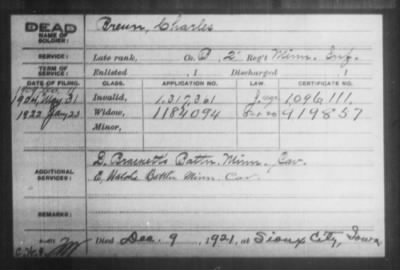 DEAD
NAME OF SOLDIER: Breun, Charles
SERVICE: Late rank, Co. D, 2" Reg't Minn. Inf.
TERM OF SERVICE: Enlisted , 1 Discharged , 1
DATE OF FILING. CLASS. APPLICATION NO. LAW. CERTIFICATE NO.
May 31 Invalid, 1,317,361 1,096,111.
1922 Jan 23 Widow, 1184094 919857
Minor,
ADDITIONAL SERVICES: D. Brackett's Battn. Minn. Cav.
Battn Minn Cav.
REMARKS:
Died Dec. 9, 1921, at Sioux City, Iowa